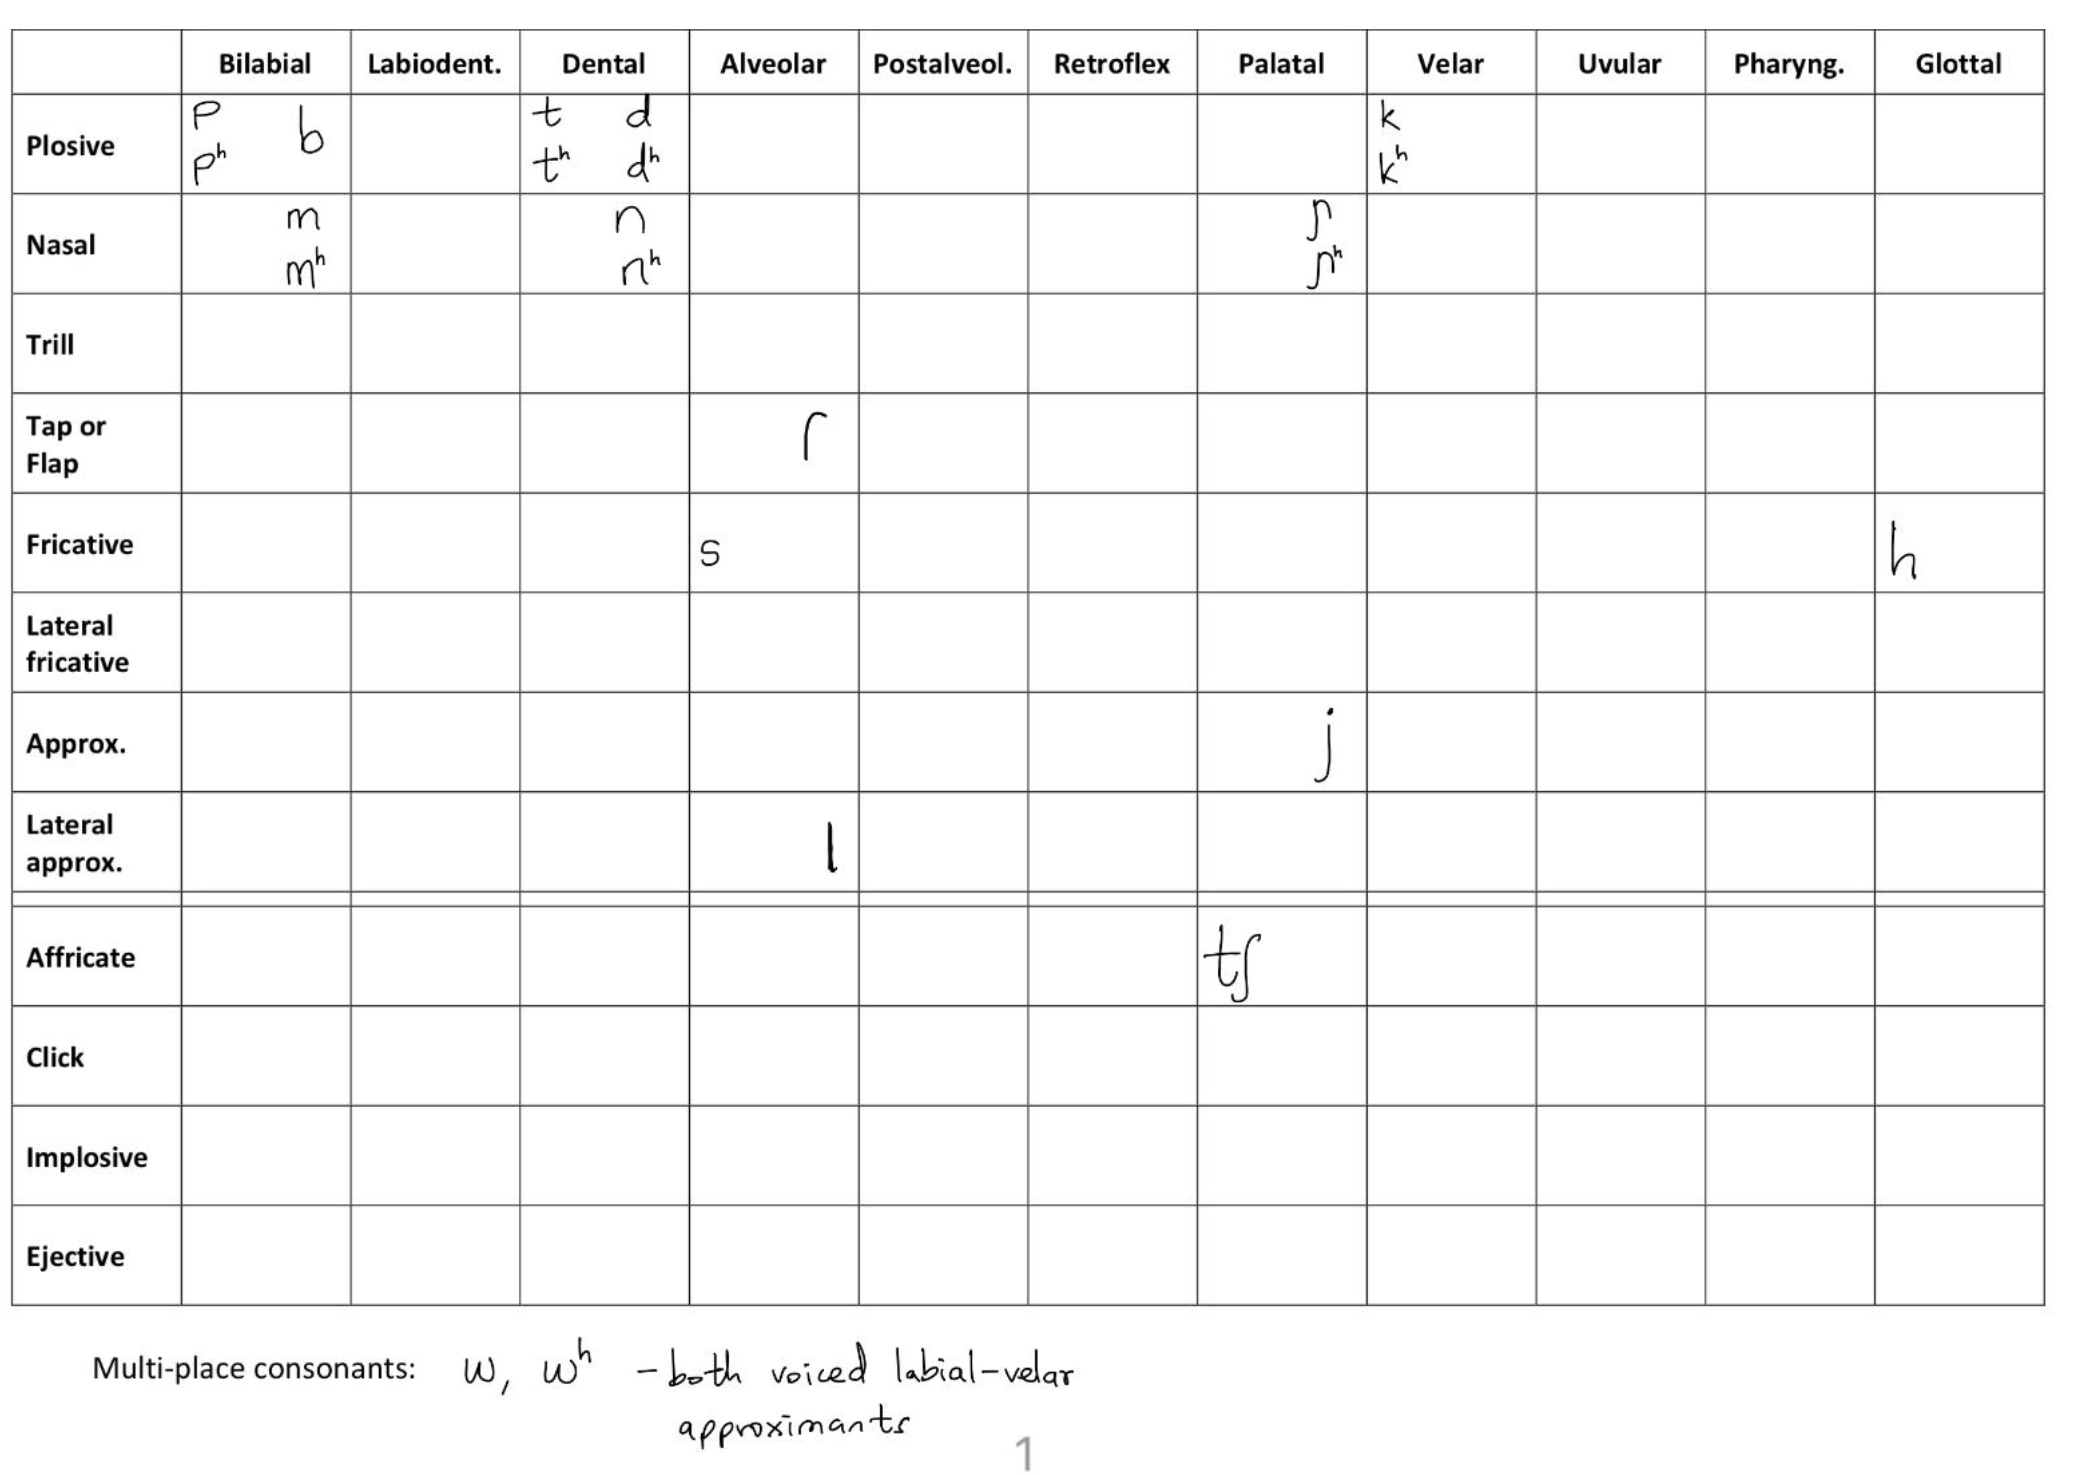 Bilabial Labiodent. Dental Alveolar Postalveol. Retroflex Palatal Velar Uvular Pharyng. Glottal
Plosive p b t d k
pʰ tʰ dʰ kʰ
Nasal m n ɲ
mʰ nʰ ɲʰ
Trill
Tap or
Flap ɾ
Fricative s h
Lateral
fricative
Approx. j
Lateral
approx. l
Affricate tʃ
Click
Implosive
Ejective
Multi-place consonants: w, wʰ - both voiced labial-velar
approximants
1